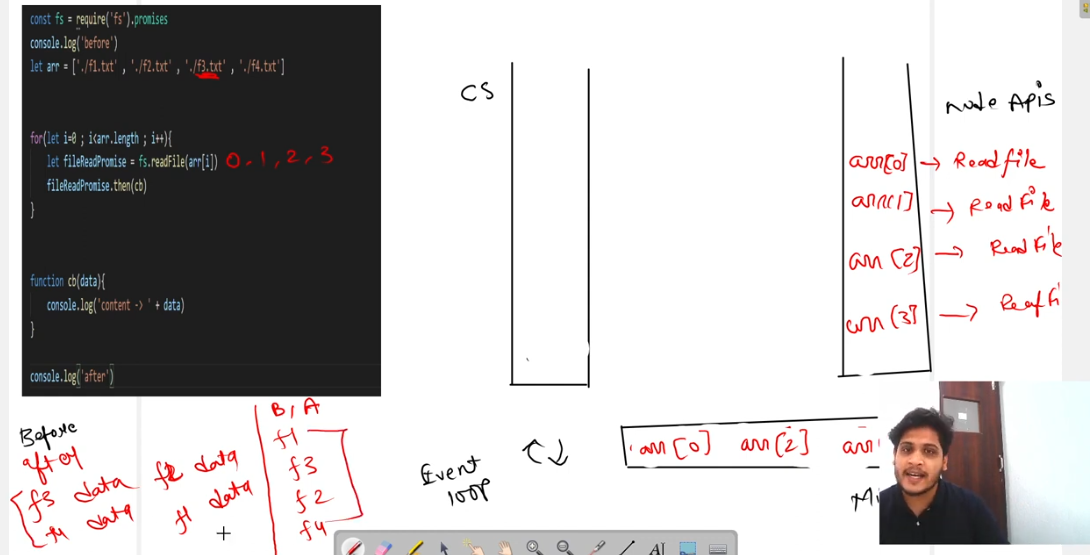 const fs = require('fs').promises
console.log('before')
let arr = ['./f1.txt' , './f2.txt' , './f3.txt' , './f4.txt']
for(let i=0 ; i<arr.length ; i++){
let fileReadPromise = fs.readFile(arr[i]) 0, 1, 2, 3
fileReadPromise.then(cb)
}
function cb(data){
console.log('content -> ' + data)
}
console.log('after')
CS
Node APIs
arr[0] → Readfile
arr[1] → ReadFile
arr[2] → ReadFile
arr[3] →
Before
after
f3 data
f4 data
data
f1 data
B/A
f1
f3
f2
f4
Event
loop
arr[0] arr[2] arr
AI